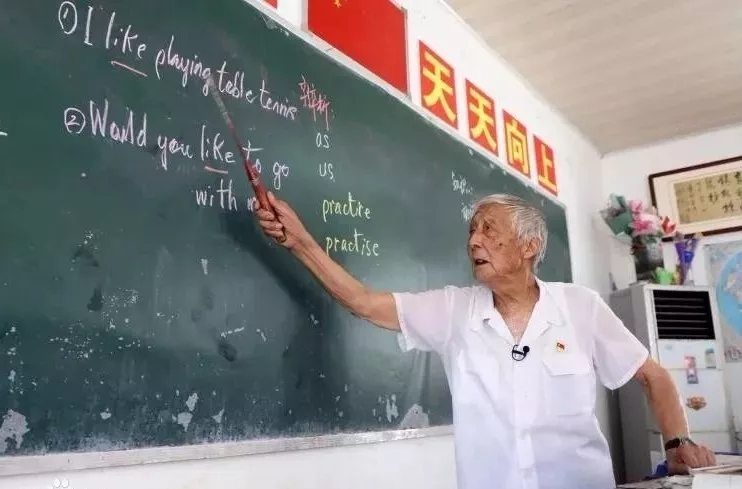 ① I like playing table tennis
② Would you like to go
with
辨析:
as
us
practice
practise
天天向上